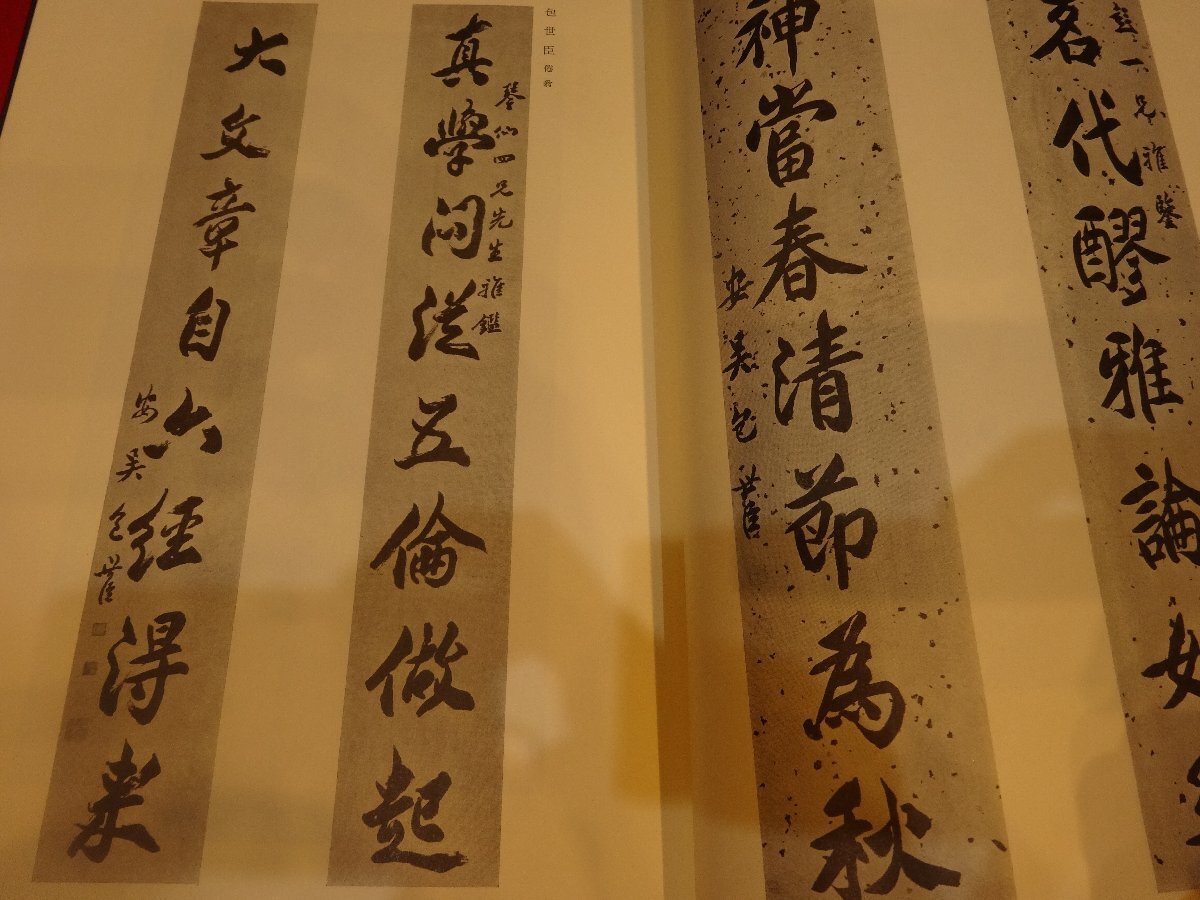 名代醪雅論
一兄雅鑒
神當春清節為秋
安吳包世臣
包世臣
真學問從五倫做起
琴仙四兄先生雅鑑
大文章自六經得來
安吳包世臣